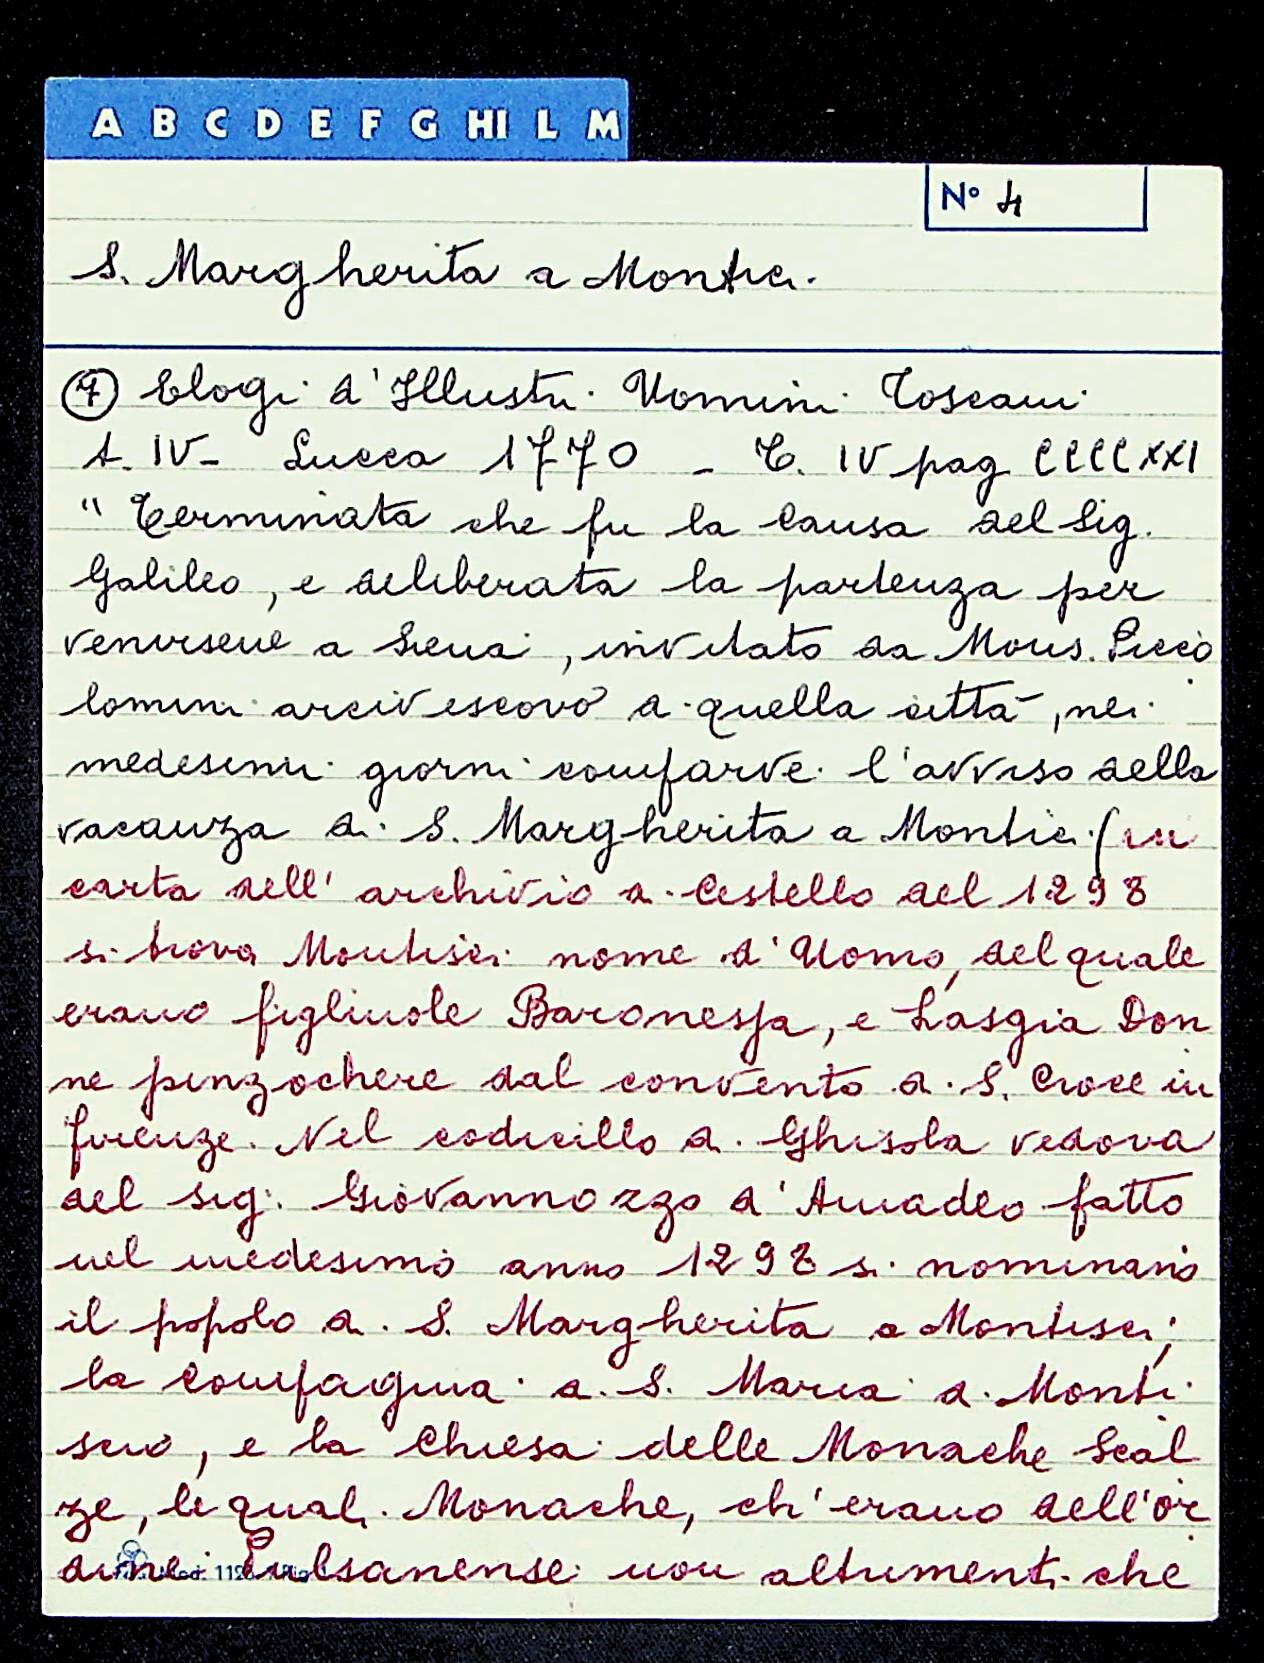 A B C D E F G HI L M
N° 4
S. Margherita a Montici.
④ Elogi d'Illustri Uomini Toscani
t. IV - Lucca 1770 - T. IV pag CCCCXXI
" Terminata che fu la causa del Sig.
Galileo, e deliberata la partenza per
venirsene a Siena, invitato da Mons. Picco
lomini arcivescovo di quella città, nei
medesimi giorni comparve l'avviso della
vacanza di S. Margherita a Montici (in
carta dell' archivio di Cestello del 1298
si trova Montisci nome d'Uomo, del quale
erano figliuole Baronessa, e Lasgia Don
ne pinzochere dal convento di S. Croce in
Firenze. Nel codicillo di Ghisola vedova
del sig. Giovannozzo d'Amadeo fatto
nel medesimo anno 1298 si nominano
il popolo di S. Margherita a Montisci;
la compagnia di S. Maria di Monti
scio, e la Chiesa delle Monache Scal
ze, le quali Monache, ch'erano dell'or
dine Pulsanense non altrimenti che